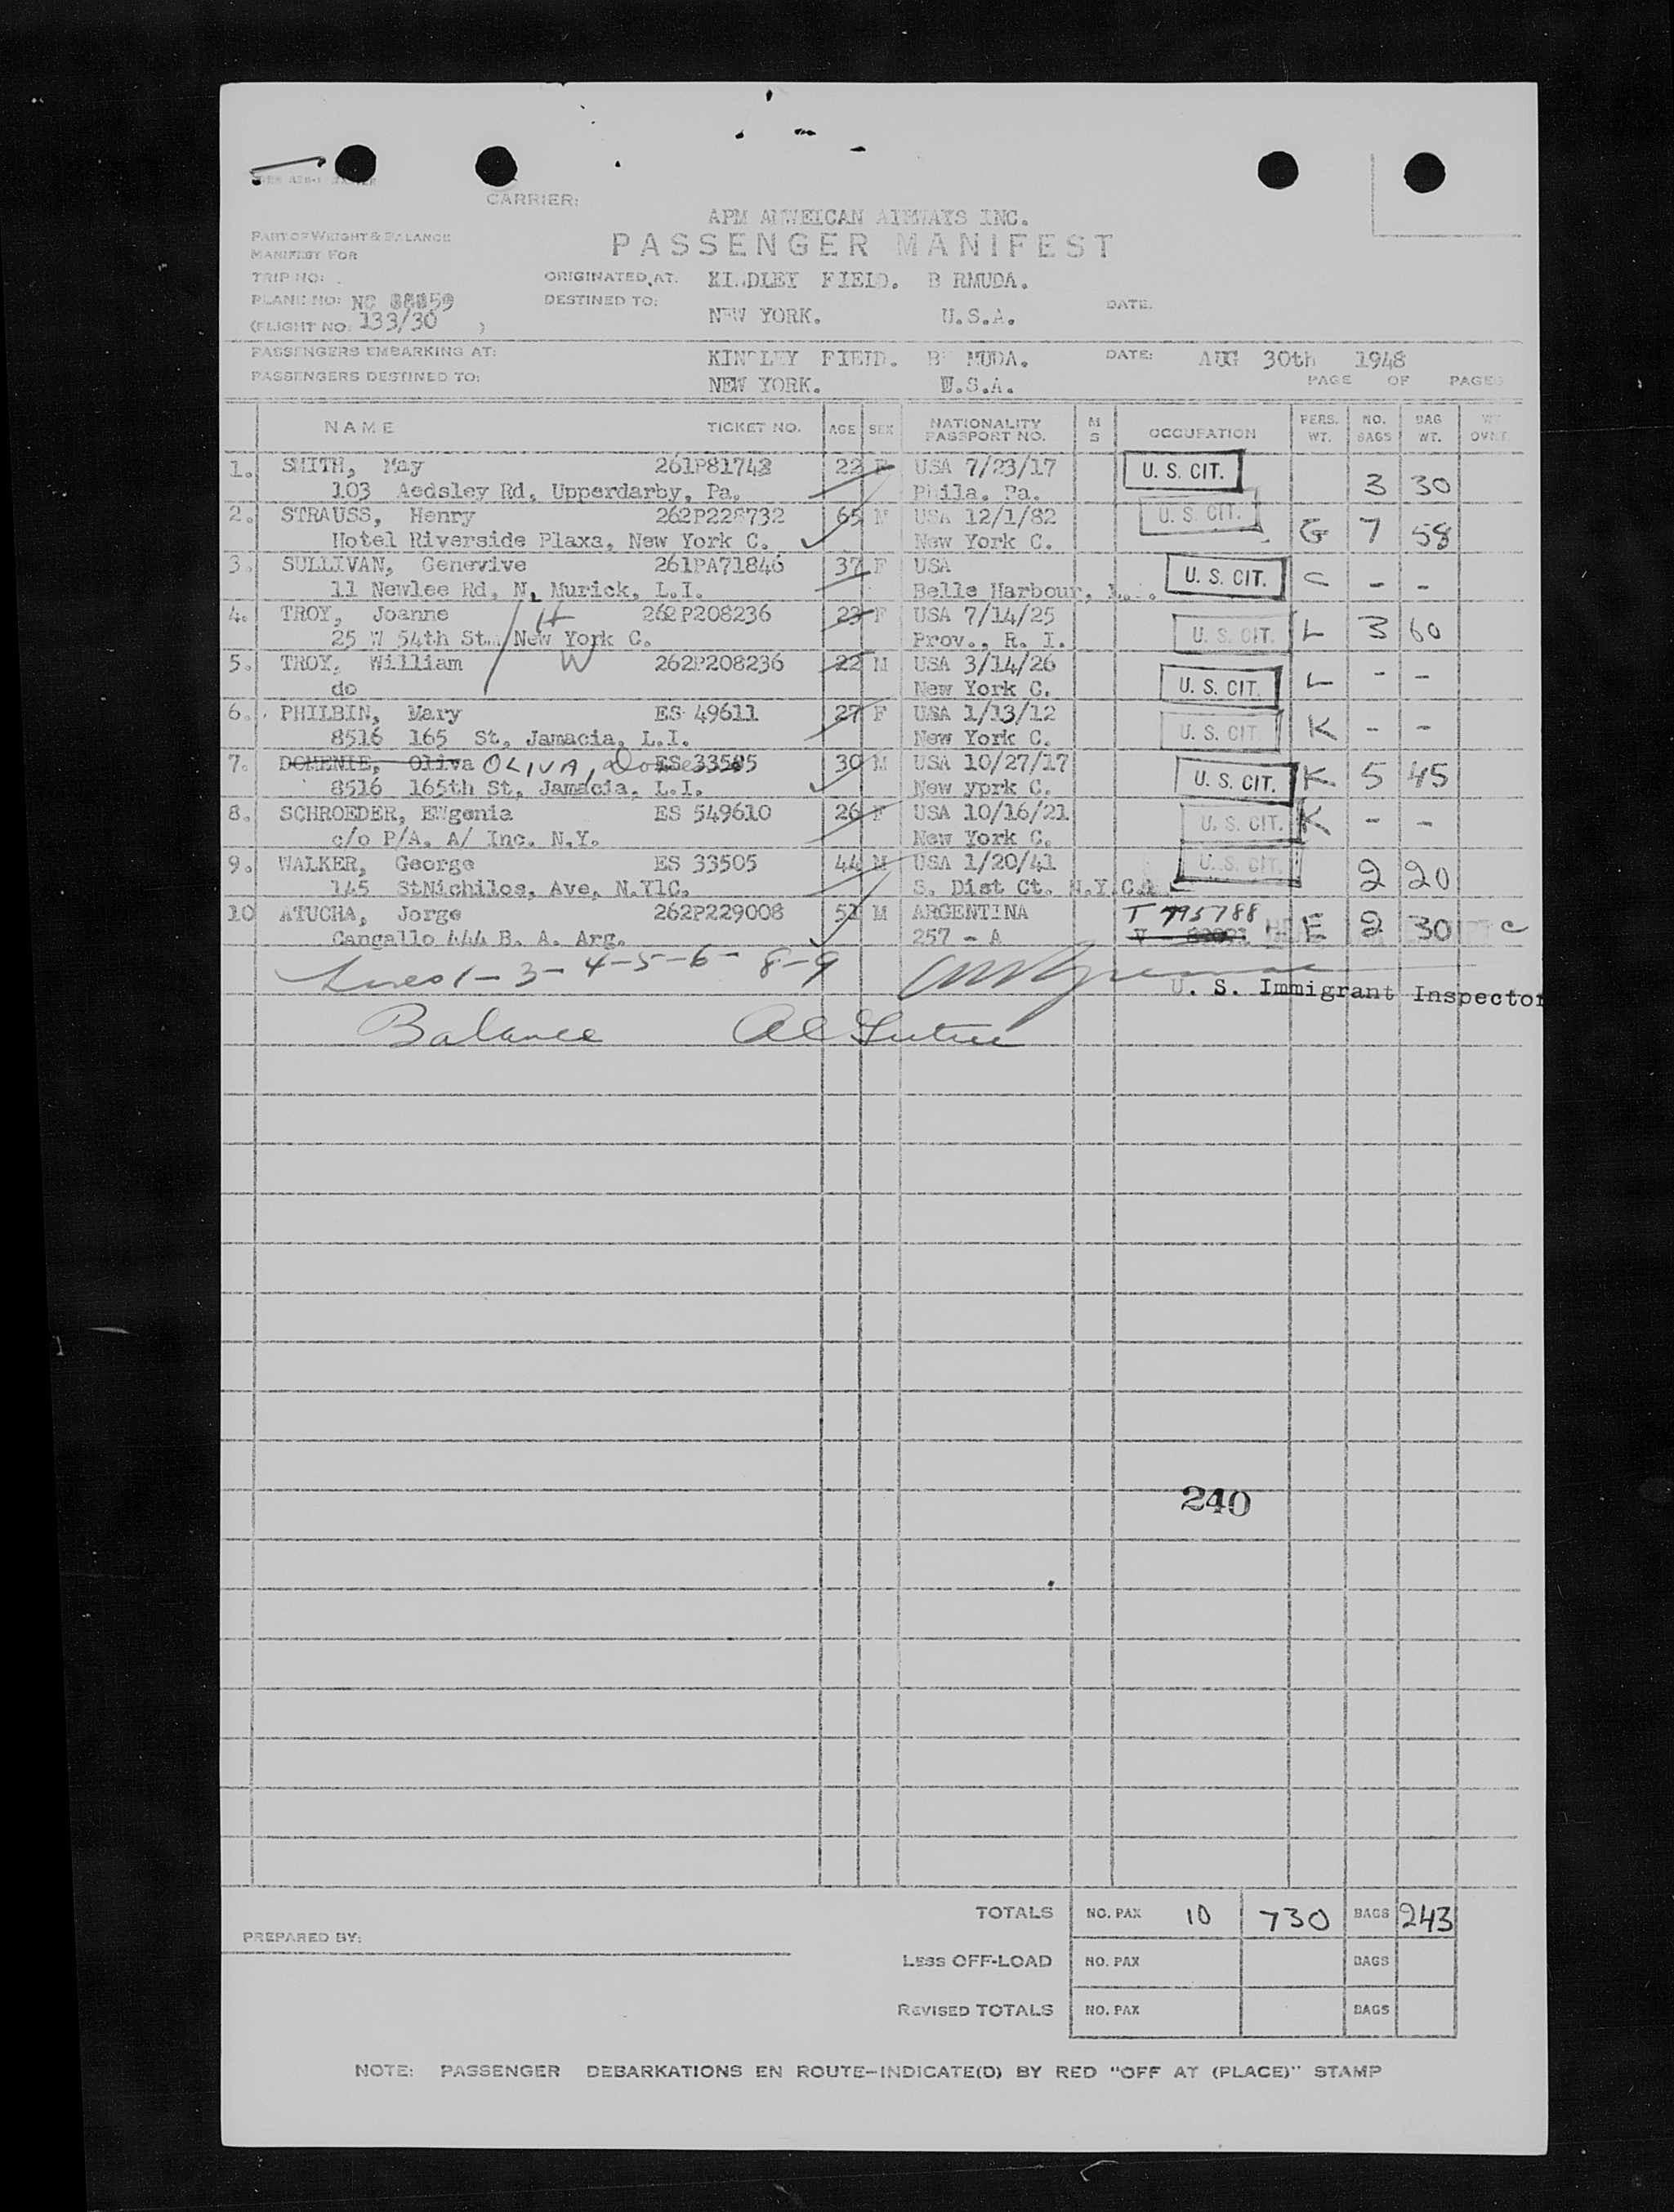 CARRIER:
APM AMWEICAN AIRWAYS INC.
PART OF WEIGHT & BALANCE
PASSENGER MANIFEST
MANIFEST FOR
TRIP NO: ORIGINATED AT. KINDLEY FIELD. B RMUDA.
PLANE NO: NC 88859 DESTINED TO: NEW YORK. U.S.A. DATE.
(FLIGHT NO. 133/30 )
PASSENGERS EMBARKING AT: KINDLEY FIELD. BE MUDA. DATE: AUG 30th 1948
PASSENGERS DESTINED TO: NEW YORK. U.S.A. PAGE OF PAGES
NAME TICKET NO. AGE SEX NATIONALITY PASSPORT NO. M S OCCUPATION PERS. WT. NO. BAGS BAG WT. WT OVNT.
1. SMITH, May 261P81743 22 F USA 7/23/17 U. S. CIT. 3 30
103 Aedsley Rd, Upperdarby, Pa. Phila. Pa.
2. STRAUSS, Henry 262P228732 65 M USA 12/1/82 U. S. CIT. G 7 58
Hotel Riverside Plaxa, New York C. New York C.
3. SULLIVAN, Genevive 261PA71846 37 F USA U. S. CIT. C - -
11 Newlee Rd, N. Murick, L.I. Belle Harbour, L.I.
4. TROY, Joanne H 262P208236 23 F USA 7/14/25 U. S. CIT. L 3 60
25 W 54th St. New York C. Prov., R. I.
5. TROY, William W 262P208236 22 M USA 3/14/26 U. S. CIT. L - -
do New York C.
6. PHILBIN, Mary ES 49611 27 F USA 1/13/12 U. S. CIT. K - -
8516 165 St, Jamacia, L.I. New York C.
7. DOMENIE, Oliva OLIVA, ES 33505 30 M USA 10/27/17 U. S. CIT. K 5 45
8516 165th St, Jamacia, L.I. New yprk C.
8. SCHROEDER, EWgenia ES 549610 26 F USA 10/16/21 U. S. CIT. K - -
c/o P/A. A/ Inc. N.Y. New York C.
9. WALKER, George ES 33505 44 M USA 1/20/41 U. S. CIT. 2 20
145 StNichilos, Ave, N.YlC. S. Dist Ct. N.Y.C.
10 ATUCHA, Jorge 262P229008 51 M ARGENTINA T 795788 E 2 30 c
Cangallo 444 B. A. Arg. 257 - A V -
Lines 1-3-4-5-6-8-9
U. S. Immigrant Inspector
Balance
240
TOTALS NO. PAX 10 730 BAGS 243
PREPARED BY:
LESS OFF-LOAD NO. PAX BAGS
REVISED TOTALS NO. PAX BAGS
NOTE: PASSENGER DEBARKATIONS EN ROUTE-INDICATE(D) BY RED "OFF AT (PLACE)" STAMP